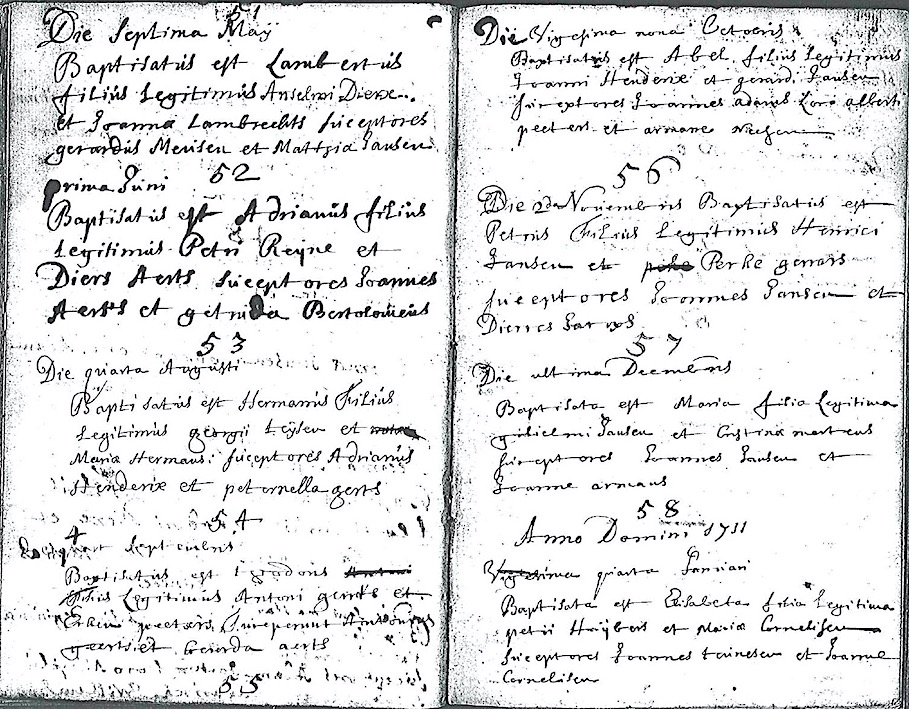 51
Die Septima Maÿ
Baptisatus est Lambertus
filius Legitimus Anselmi Dierx
et Joanna Lambrechts susceptores
gerardus Meuisen et Matthia Jansen
52
prima Juni
Baptisatus est Adrianus filius
Legitimus Petri Reyne et
Diers Aerts susceptores Joannes
Aerts et getruda Bertolomeus
53
Die quarta Augusti
Baptisatus est Hermanus filius
Legitimus georgii Leysen et
Maria Hermans: susceptores Adrianus
Henderix et peternella gerts
54
4
Septembris
Baptisatus est
filius Legitimus Antoni gerits et
peeters, susceperunt Antonius
geerts et Gerarda aerts
55
Die Vigesima nona Octobris
Baptisatus est Abel filius Legitimus
Joanni Henderix et gerard. Jansen
susceptores Joannes adams loco albert
peeters et armane
56
Die 2da Novembris Baptisatus est
Petrus filius Legitimus Henrici
Jansen et Perke gerars
susceptores Joannes Jansen et
57
Die ultima Decembris
Baptisata est Maria filia Legitima
guilielmi Jansen et Cristina martens
susceptores Joannes Jansen et
Joanne armans
58
Anno Domini 1711
quarta Januari
Baptisata est Elisabeta filia Legitima
petri Haÿbers et Maria Cornelisen
susceptores Joannes teunesen et Joanne
Cornelisen